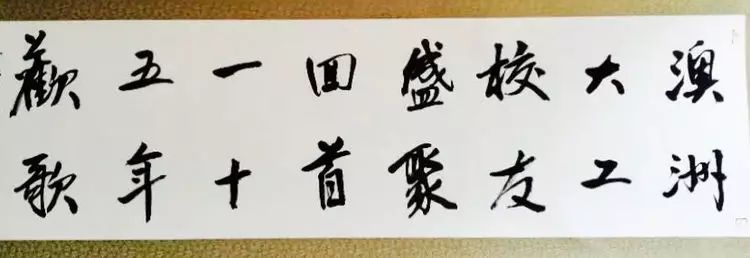 澳洲
大工
校友
盛聚
回首
一十
五年
歡歌